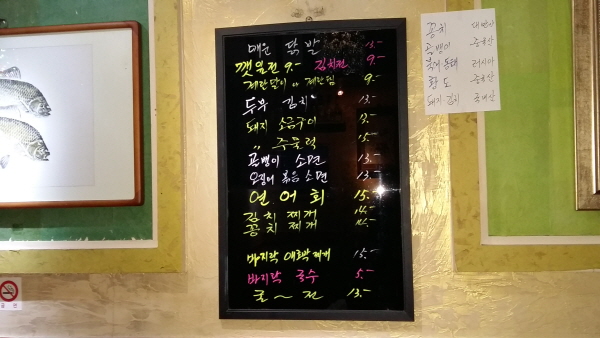 매운 닭발 13.-
깻잎전 9.- 김치전 9.-
계란말이 〃 계란찜 9.-
두부 김치 13.-
돼지 소금구이 13.-
〃 주물럭 15.-
골뱅이 소면 13.-
오징어 볶음 소면 13.-
연어회 15.-
김치 찌개 14.-
꽁치 찌개 14.-
바지락 애호박 찌개 13.-
바지락 국수 5.-
전 13.-
꽁치 대만산
골뱅이 중국산
러시아
황도 중국산
돼지·김치 국내산